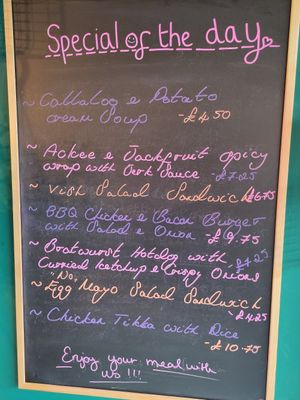 Special of the day
~ Callaloo e Potato
cream Soup -£4.50
~ Ackee e Jackfruit spicy
wrap with Jerk Sauce -£7.25
~ Vish Salad Sandwich £6.75
~ BBQ Chicken e Bacon Burger
with Salad e Onion -£9.75
~ Bratwurst Hotdog with £7.25
Curried Ketchup e Crispy Onions
"No"
~ Egg Mayo Salad Sandwich
-£4.25
~ Chicken Tikka with Rice
-£10.75
Enjoy your meal with
us !!!